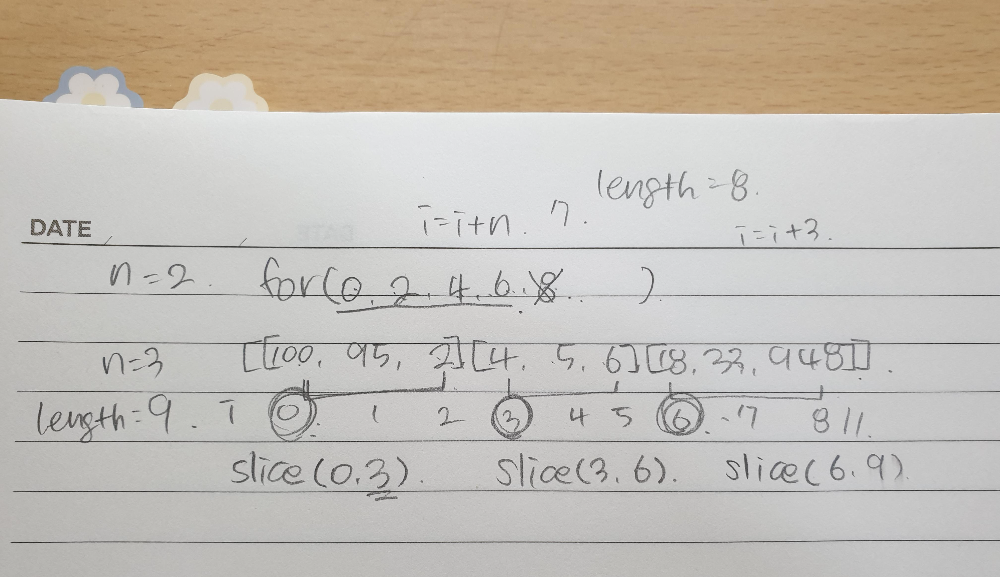 length=8.
i=i+n. 7. i=i+3.
DATE
n=2. for(0, 2, 4, 6. 8.. )
n=3 [[100, 95, 2][4, 5, 6][18, 33, 948]].
length=9. i 0 1 2 3 4 5 6 7 8 11.
slice(0.3). slice(3.6). slice(6.9)